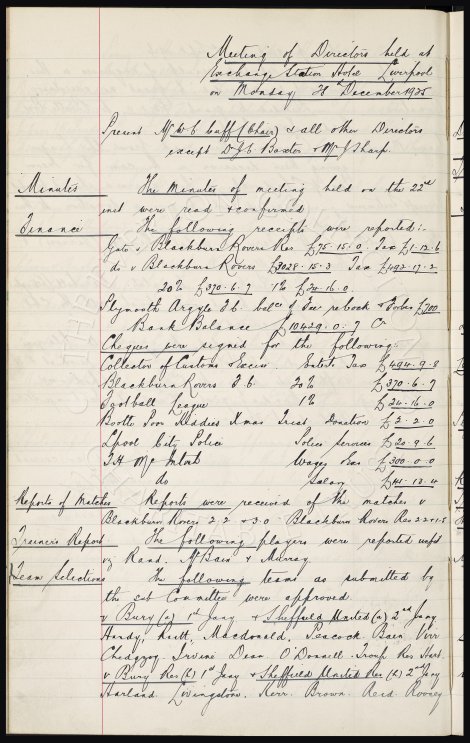 Meeting of Directors held at
Exchange Station Hotel Liverpool
on Monday 28th December 1925
Present Mr W C Cuff (Chair) & all other Directors
except Dr J C Baxter & Mr J Sharp.
Minutes The Minutes of meeting held on the 22nd
inst were read & confirmed
Finance The following receipts were reported:-
Gate v Blackburn Rovers Res £75.15.0. Tax £1.12.6
do v Blackburn Rovers £3028.15.3 Tax £492.17.2
20% £370.6.7 1% £24.16.0.
Plymouth Argyle F.C. balce of Tax rebook & Forbes £700
Bank Balance £10429.0.7 Cr
Cheques were signed for the following:
Collector of Customs & Excise. Enterts Tax £494.9.8
Blackburn Rovers F.C. 20% £370.6.7
Football League 1% £24.16.0
Bootle Poor Kiddies Xmas Treat. Donation £2.2.0
Lpool City Police Police Services £20.9.6
T.H. McIntosh Wages Exes £300.0.0
do Salary £41.13.4
Reports of Matches Reports were received of the matches v
Blackburn Rovers 2.2 & 3.0 Blackburn Rovers Res 2.2 & 1.5
Trainers Report The following players were reported unfit
vz Rand. McBain & Murray
Team Selections The following teams as submitted by
the sub Committee were approved
v Bury (a) 1st Jany & Sheffield United (a) 2nd Jany
Hardy, Raitt, Macdonald, Peacock Bain Virr
Chedgzoy Irvine Dean O'Donnell Troup Res Hart.
v Bury Res (h) 1st Jany & Sheffield United Res (h) 2nd Jany
Harland. Livingstone. Kerr. Brown. Reid Rooney